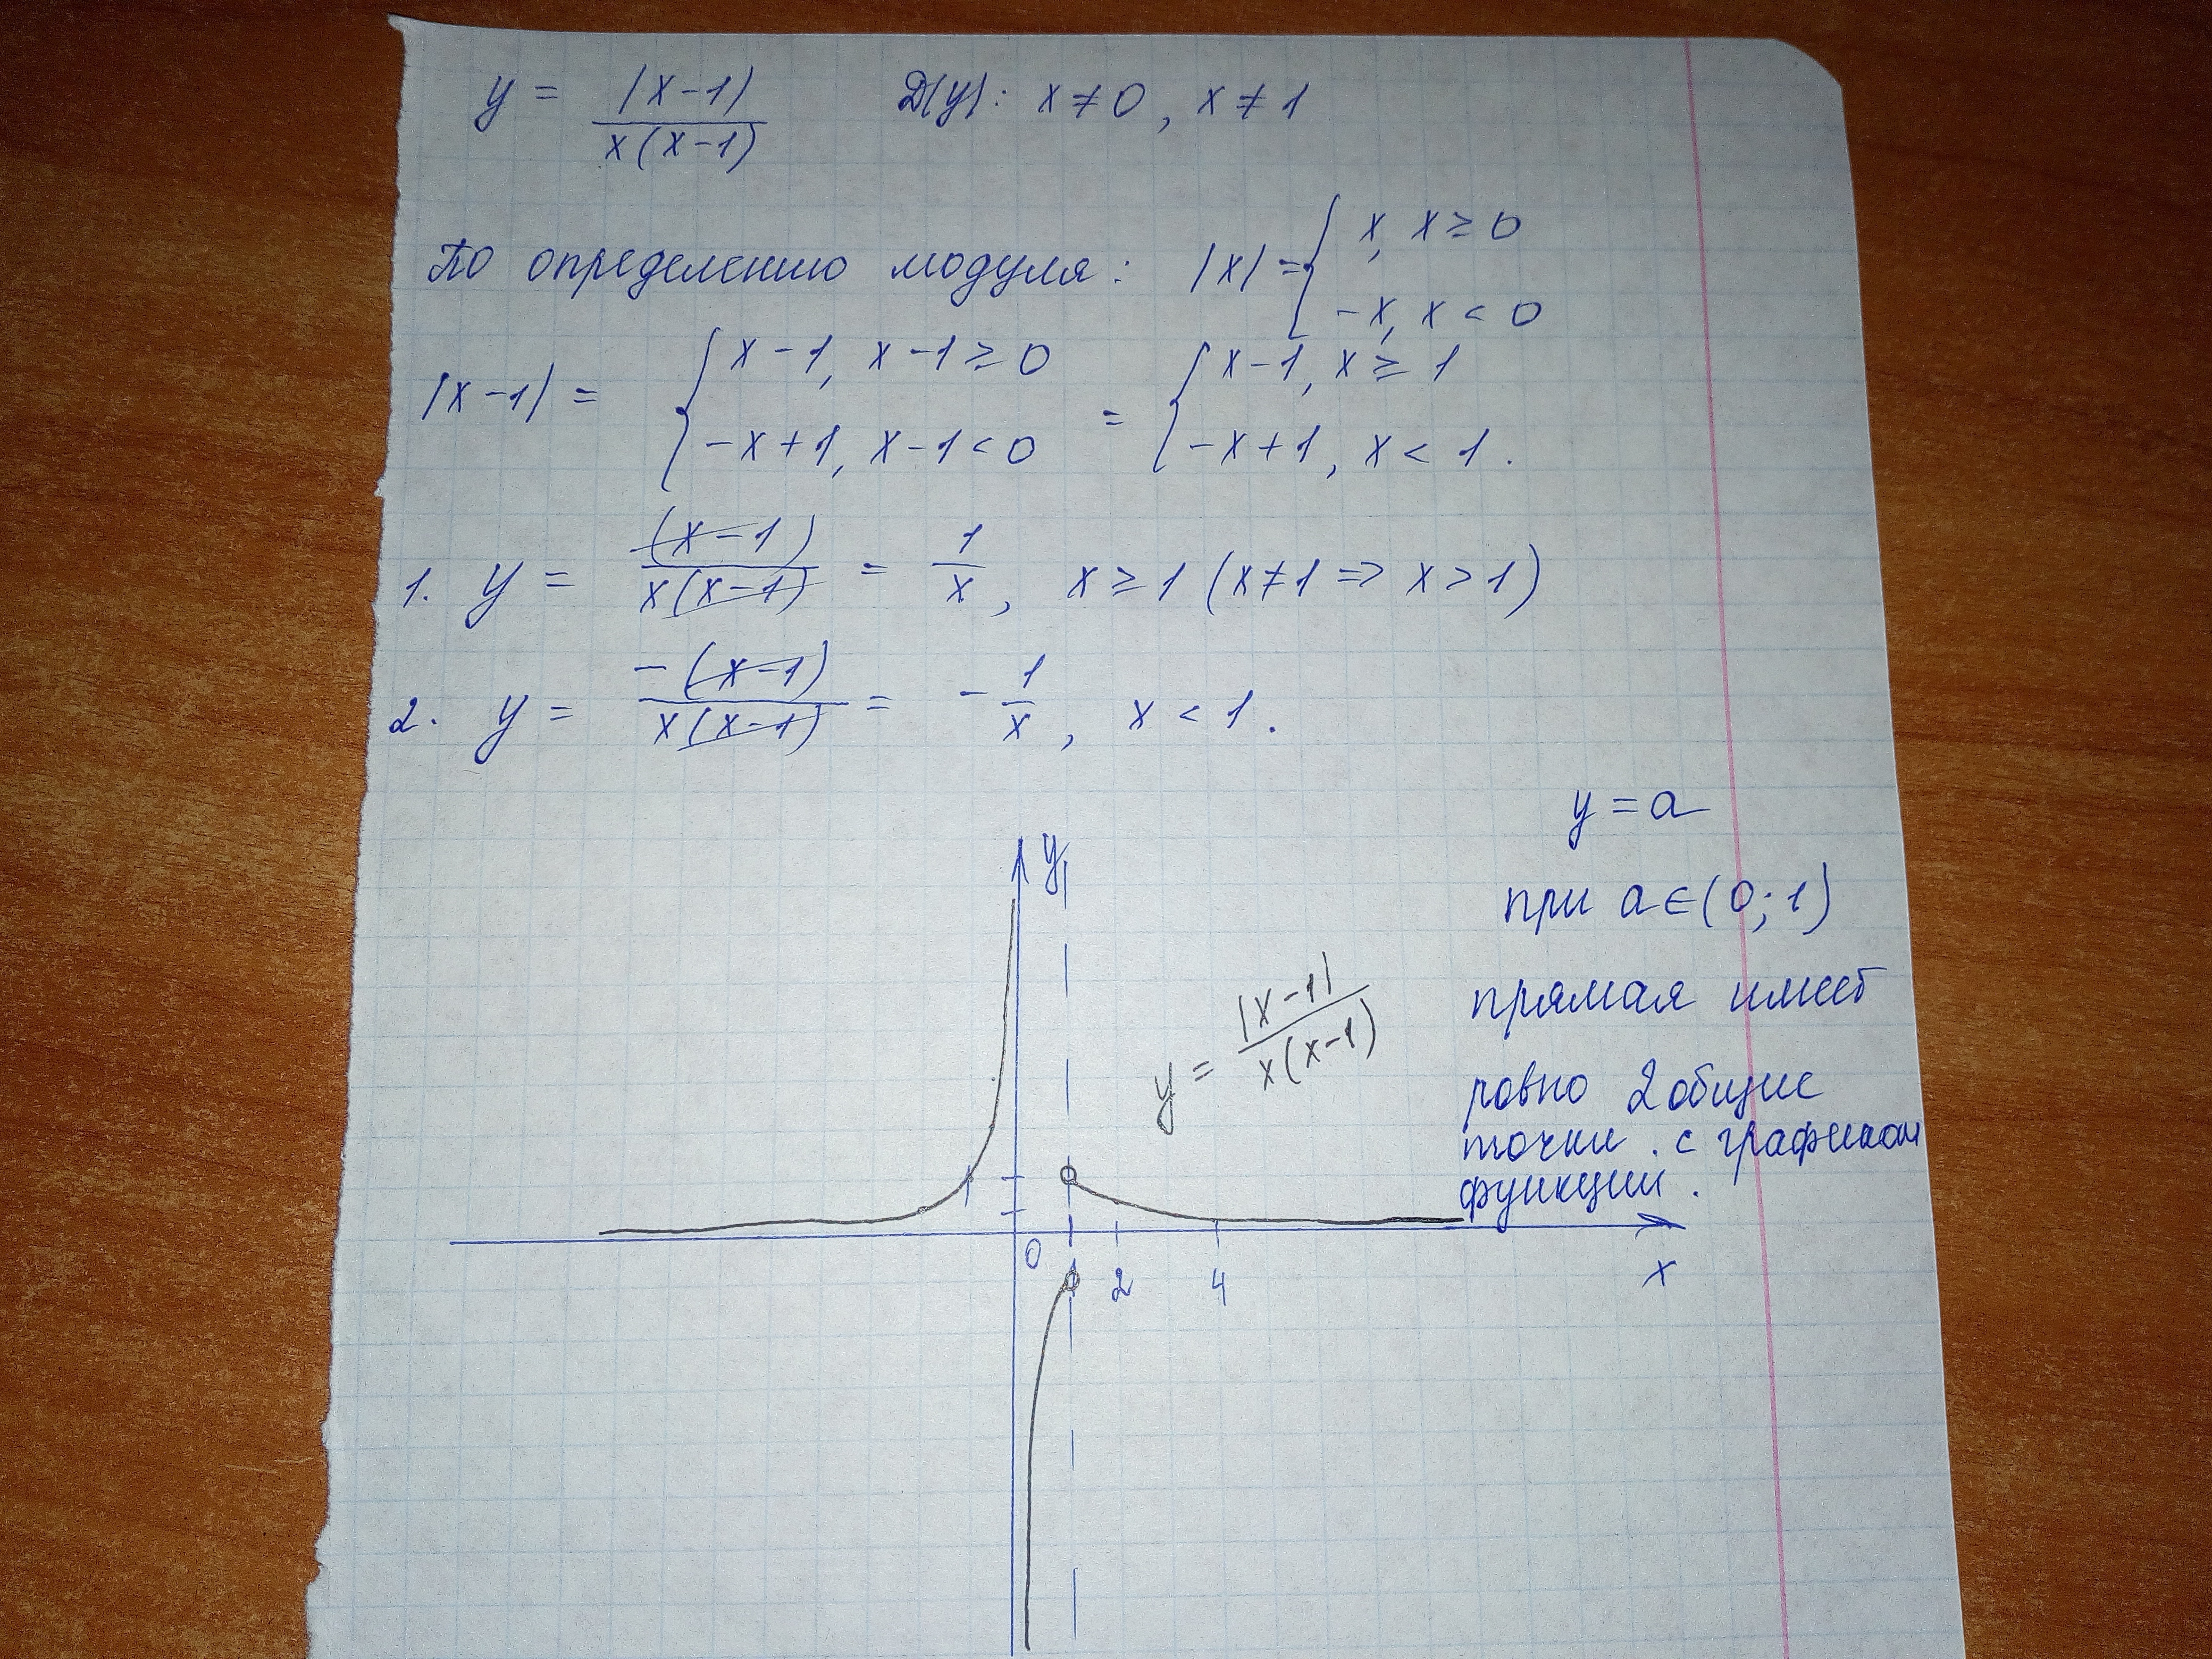 y = |x-1| / x(x-1) D(y): x ≠ 0, x ≠ 1
По определению модуля: |x| = { x, x ≥ 0
-x, x < 0
|x-1| = { x-1, x-1 ≥ 0 = { x-1, x ≥ 1
-x+1, x-1 < 0 -x+1, x < 1.
1. y = (x-1) / x(x-1) = 1/x, x ≥ 1 (x ≠ 1 => x > 1)
2. y = -(x-1) / x(x-1) = - 1/x, x < 1.
y = a
при a ∈ (0; 1)
прямая имеет
ровно 2 общие
точки . с графиком
функции .
y
y = |x-1| / x(x-1)
0 1 2 4 x